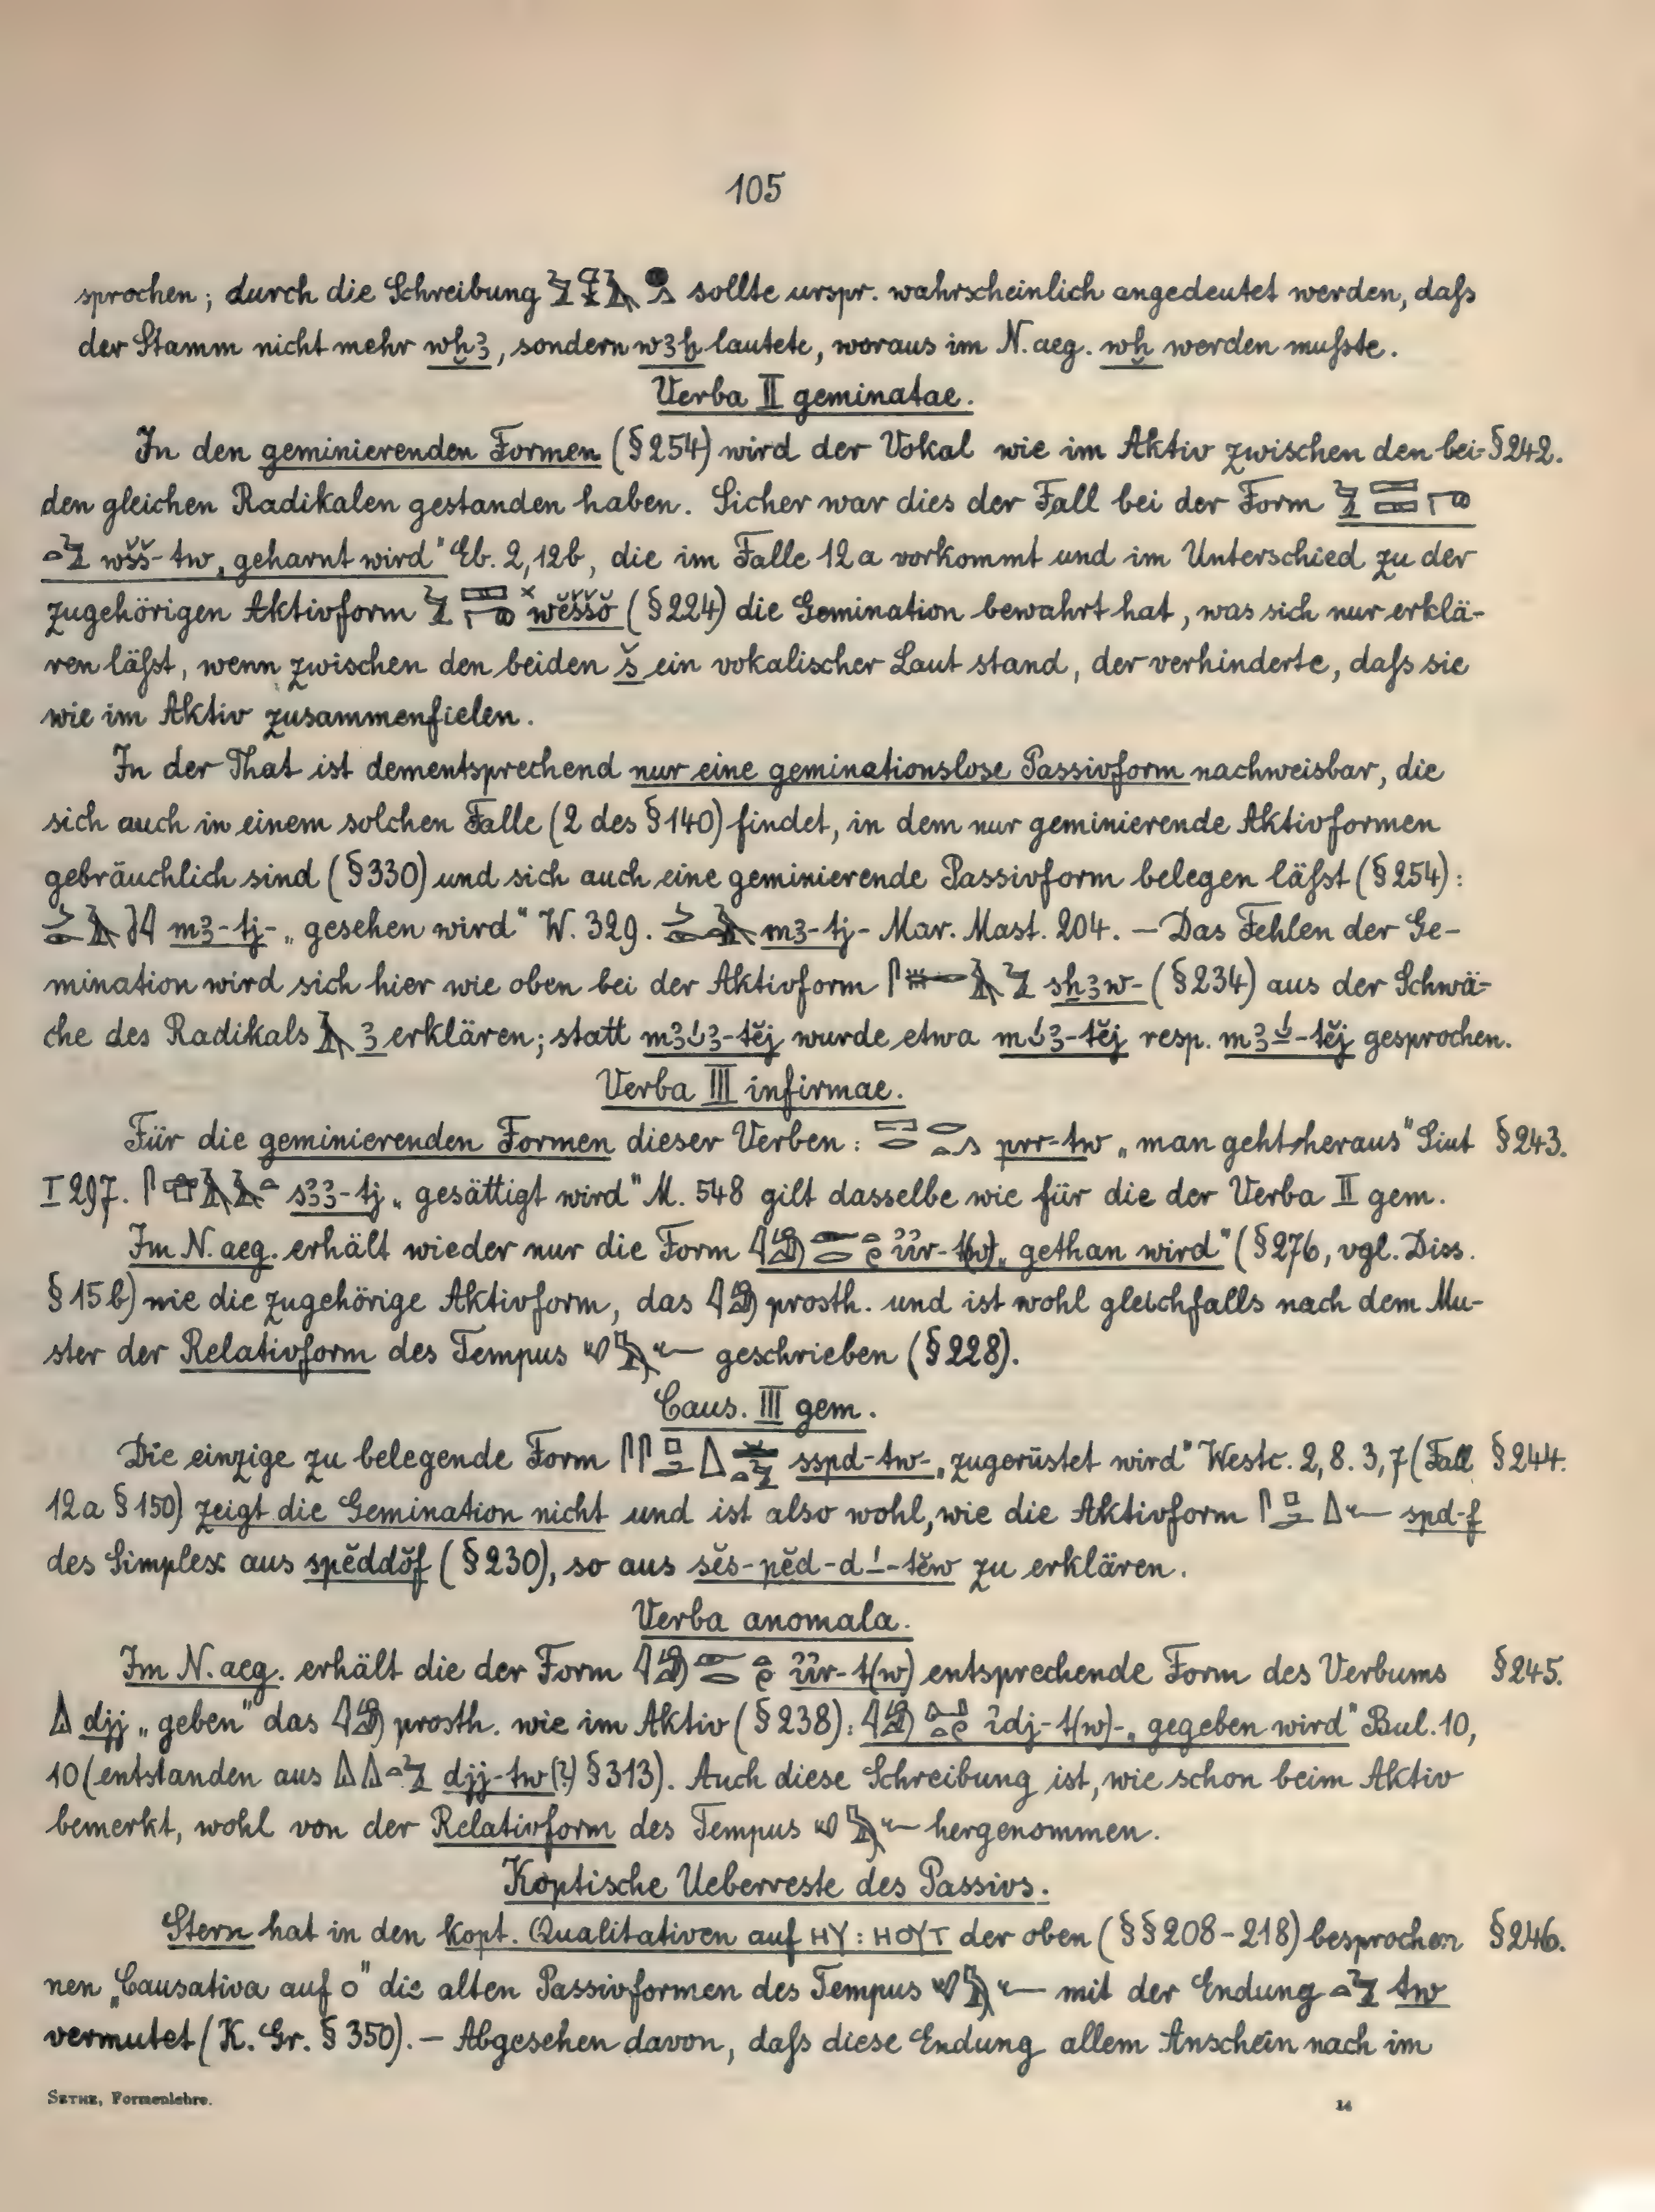 105
sprochen; durch die Schreibung sollte urspr. wahrscheinlich angedeutet werden, daſs
der Stamm nicht mehr wḫꜣ, sondern wꜣḫ lautete, woraus im N. aeg. wḫ werden muſste.
Verba II geminatae.
In den geminierenden Formen (§ 254) wird der Vokal wie im Aktiv zwischen den bei- § 242.
den gleichen Radikalen gestanden haben. Sicher war dies der Fall bei der Form
wšš-tw „geharnt wird" Eb. 2, 12b, die im Falle 12a vorkommt und im Unterschied zu der
zugehörigen Aktivform wĕššŏ (§ 224) die Gemination bewahrt hat, was sich nur erklä-
ren läſst, wenn zwischen den beiden š ein vokalischer Laut stand, der verhinderte, daſs sie
wie im Aktiv zusammenfielen.
In der That ist dementsprechend nur eine geminationslose Passivform nachweisbar, die
sich auch in einem solchen Falle (2 des § 140) findet, in dem nur geminierende Aktivformen
gebräuchlich sind (§ 330) und sich auch eine geminierende Passivform belegen läſst (§ 254):
mꜣ-tj- „gesehen wird" W. 329. mꜣ-tj- Mar. Mast. 204. — Das Fehlen der Ge-
mination wird sich hier wie oben bei der Aktivform sḫꜣw- (§ 234) aus der Schwä-
che des Radikals ꜣ erklären; statt wurde etwa resp. gesprochen.
Verba III infirmae.
Für die geminierenden Formen dieser Verben: prr-tw „man geht heraus" Siut § 243.
I 297. sꜣꜣ-tj „gesättigt wird" M. 548 gilt dasselbe wie für die der Verba II gem.
Im N. aeg. erhält wieder nur die Form ı͗ı͗r-t(w) „gethan wird" (§ 276, vgl. Diss.
§ 15b) wie die zugehörige Aktivform, das prosth. und ist wohl gleichfalls nach dem Mu-
ster der Relativform des Tempus geschrieben (§ 228).
Caus. III gem.
Die einzige zu belegende Form sspd-tw- „zugerüstet wird" Westc. 2, 8. 3, 7 (Fall § 244.
12a § 150) zeigt die Gemination nicht und ist also wohl, wie die Aktivform spd-f
des Simplex aus spĕddŏf (§ 230), so aus sĕs-pĕd-d-́-tĕw zu erklären.
Verba anomala.
Im N. aeg. erhält die der Form ı͗ı͗r-t(w) entsprechende Form des Verbums § 245.
djj „geben" das prosth. wie im Aktiv (§ 238): ı͗dj-t(w)- „gegeben wird" Bul. 10,
10 (entstanden aus djj-tw (?) § 313). Auch diese Schreibung ist, wie schon beim Aktiv
bemerkt, wohl von der Relativform des Tempus hergenommen.
Koptische Ueberreste des Passivs.
Stern hat in den kopt. Qualitativen auf ΗΥ: ΗΟΥΤ der oben (§§ 208-218) besproche- § 246.
nen „Causativa auf o" die alten Passivformen des Tempus mit der Endung tw
vermutet (K. Gr. § 350). — Abgesehen davon, daſs diese Endung allem Anschein nach im
SETHE, Formenlehre. 14